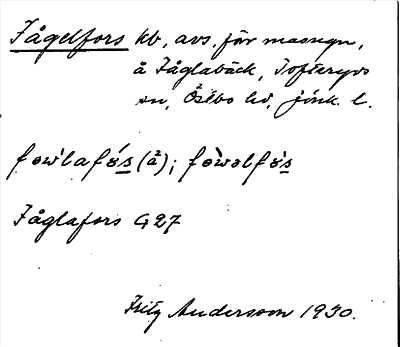 Fågelfors kb, avs. för masugn,
å Fåglabäck, Tofteryds
sn, Östbo hd, jönk. l.
fɷwlafɷ́s (å̀); fɷ̀wəlfɷ̀s
Fåglafors G 27
Fritz Andersson 1930.